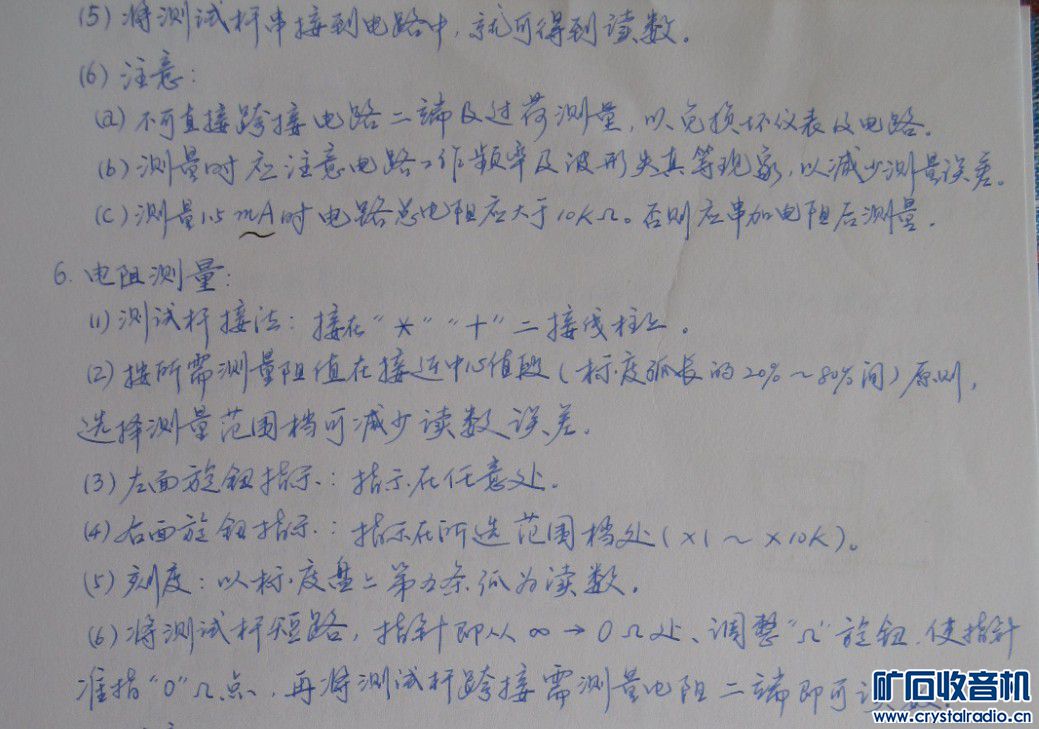 (5) 将测试杆串接到电路中，就可得到读数。
(6) 注意：
(a) 不可直接跨接电路二端及过荷测量，以免损坏仪表及电路。
(b) 测量时应注意电路工作频率及波形失真等现象，以减少测量误差。
(c) 测量1.5mA时电路总电阻应大于10KΩ。否则应串加电阻后测量。
6. 电阻测量：
(1) 测试杆接法：接在“*”“+”二接线柱上。
(2) 按所需测量阻值在接近中心值段（标度弧长的20%～80%间）原则，
选择测量范围档可减少读数误差。
(3) 左面旋钮指示：指示在任意处。
(4) 右面旋钮指示：指示在所选范围档处(×1～×10K)。
(5) 刻度：以标度盘上第五条弧为读数。
(6) 将测试杆短路，指针即从∞→0Ω处、调整“Ω”旋钮，使指针
准指“0”Ω点，再将测试杆跨接需测量电阻二端即可读数。
矿石收音机
www.crystalradio.cn